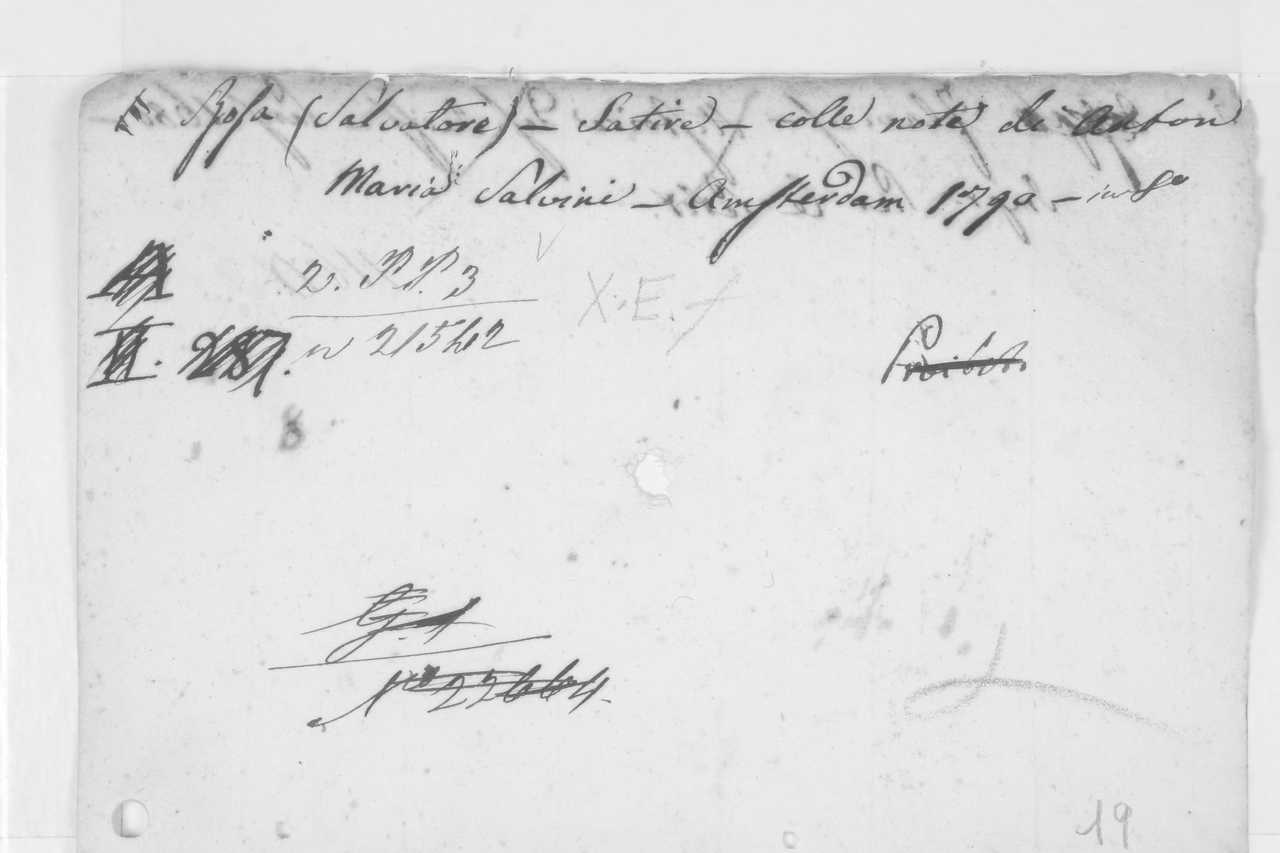 Rosa (Salvatore) – Satire – colle note di Anton
Maria Salvini – Amsterdam 1790 – in 8o
2. PP. 3
n 21542
X. E.
Proibito
G. 1
No 22664.
19